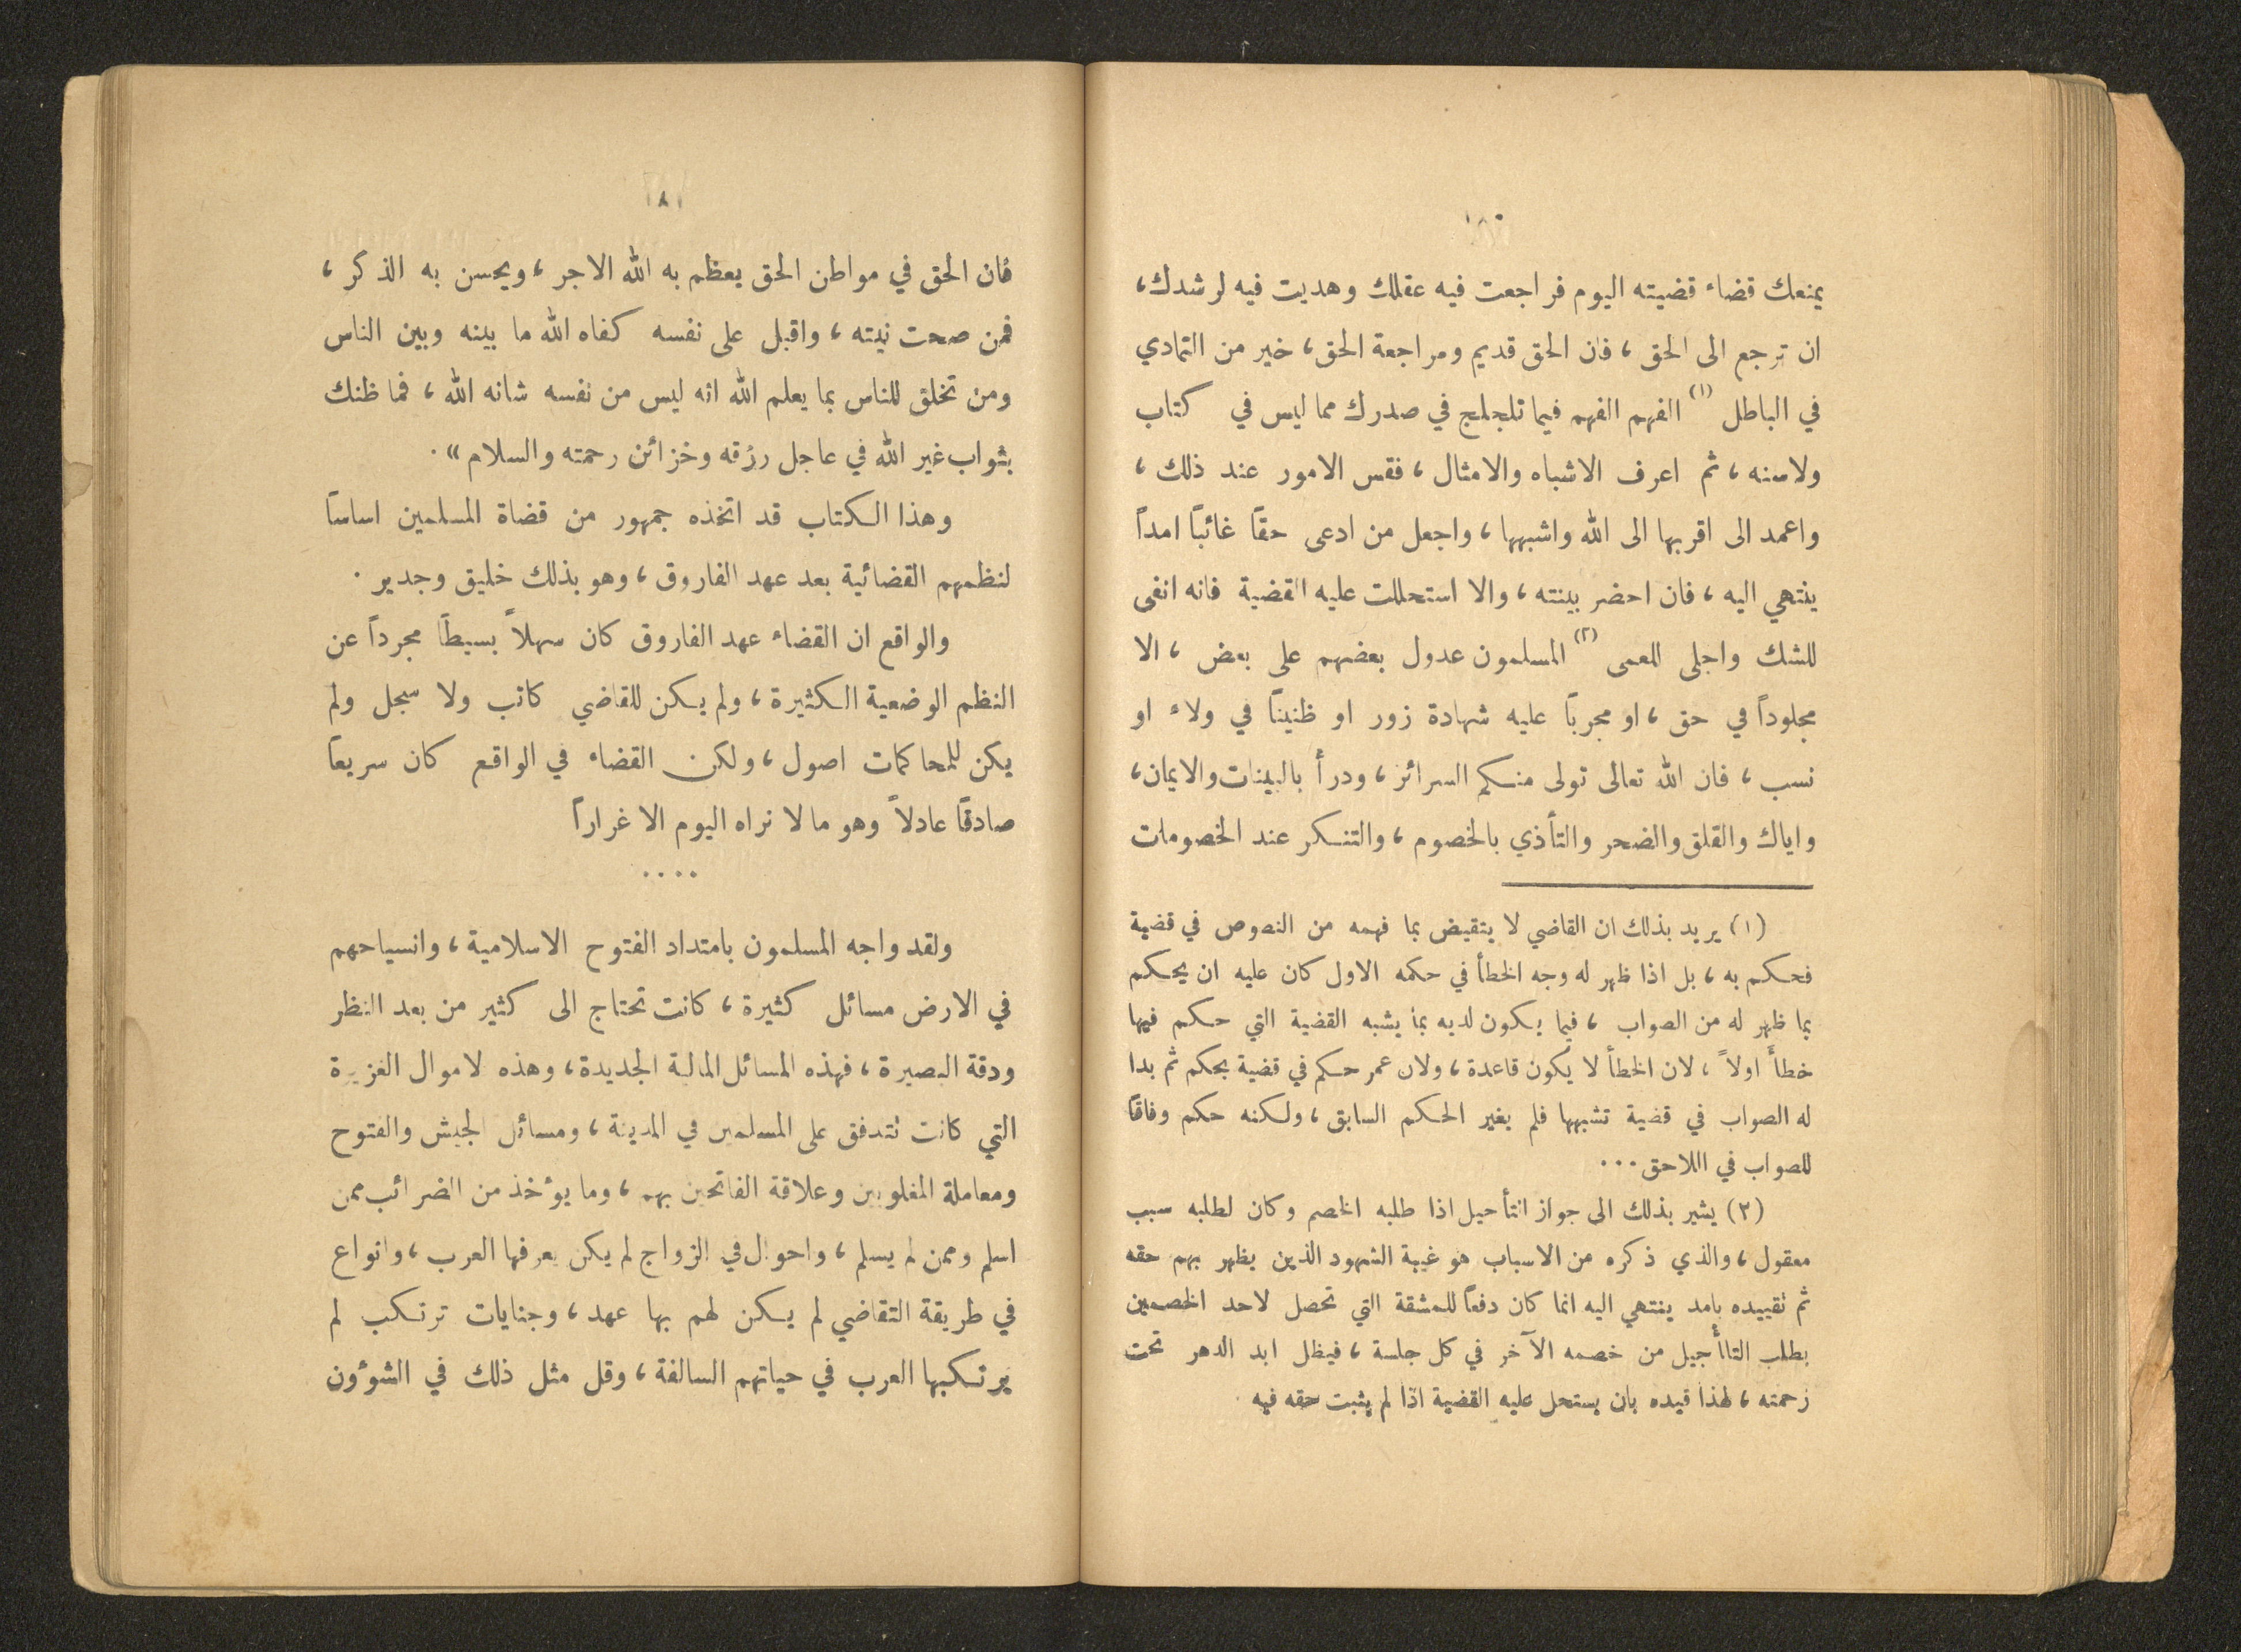 ١٨٠
يمنعك قضاء قضيته اليوم فراجعت فيه عقلك وهديت فيه لرشدك،
ان ترجع الى الحق، فان الحق قديم ومراجعة الحق، خير من التمادي
في الباطل (١) الفهم الفهم فيما تلجلج في صدرك مما ليس في كتاب
ولاسنه، ثم اعرف الاشباه والامثال، فقس الامور عند ذلك،
واعمد الى اقربها الى الله واشبهها، واجعل من ادعى حقاً غائباً امداً
ينتهي اليه، فان احضر بينته، والا استحللت عليه القضية فانه انفى
للشك واجلى للعمى (٢) المسلمون عدول بعضهم على بعض، الا
مجلوداً في حق، او مجرباً عليه شهادة زور او ظنيناً في ولاء او
نسب، فان الله تعالى تولى منكم السرائر، ودرأ بالبينات والايمان،
واياك والقلق والضحر والتأذي بالخصوم، والتنكر عند الخصومات
(١) يريد بذلك ان القاضي لا يتقيض بما فهمه من النصوص في قضية
فحكم به، بل اذا ظهر له وجه الخطأ في حكمه الاول كان عليه ان يحكم
بما ظهر له من الصواب، فيما يكون لديه بما يشبه القضية التي حكم فيها
خطأً اولاً، لان الخطأ لا يكون قاعدة، ولان عمر حكم في قضية بحكم ثم بدا
له الصواب في قضية تشبهها فلم يغير الحكم السابق، ولكنه حكم وفاقاً
للصواب في اللاحق...
(٢) يشير بذلك الى جواز التأحيل اذا طلبه الخصم وكان لطلبه سبب
معقول، والذي ذكره من الاسباب هو غيبة الشهود الذين يظهر بهم حقه
ثم تقييده بامد ينتهي اليه انما كان دفعاً للمشقة التي تحصل لاحد الخصمين
بطلب التاأجيل من خصمه الآخر في كل جلسة، فيظل ابد الدهر تحت
زحمته، لهذا قيده بان يستحل عليه القضية اذا لم يثبت حقه فيه.
١٨١
فان الحق في مواطن الحق يعظم به الله الاجر، ويحسن به الذكر،
فمن صحت نيته، واقبل على نفسه كفاه الله ما بينه وبين الناس
ومن تخلق للناس بما يعلم الله انه ليس من نفسه شانه الله، فما ظنك
بثواب غير الله في عاجل رزقه وخزائن رحمته والسلام».
وهذا الكتاب قد اتخذه جمهور من قضاة المسلمين اساساً
لنظمهم القضائية بعد عهد الفاروق، وهو بذلك خليق وجدير.
والواقع ان القضاء عهد الفاروق كان سهلاً بسيطاً مجرداً عن
النظم الوضعية الكثيرة، ولم يكن للقاضي كاتب ولا سجل ولم
يكن للمحاكمات اصول، ولكن القضاء في الواقع كان سريعاً
صادقاً عادلاً وهو ما لا نراه اليوم الا غراراً
....
ولقد واجه المسلمون بامتداد الفتوح الاسلامية، وانسياحهم
في الارض مسائل كثيرة، كانت تحتاج الى كثير من بعد النظر
ودقة البصيرة، فهذه المسائل المالية الجديدة، وهذه لاموال الغزيرة
التي كانت تتدفق على المسلمين في المدينة، ومسائل الجيش والفتوح
ومعاملة المغلوبين وعلاقة الفاتحين بهم، وما يؤخذ من الضرائب ممن
اسلم وممن لم يسلم، واحوال في الزواج لم يكن يعرفها العرب، وانواع
في طريقة التقاضي لم يكن لهم بها عهد، وجنايات ترتكب لم
يرتكبها العرب في حياتهم السالفة، وقل مثل ذلك في الشؤون